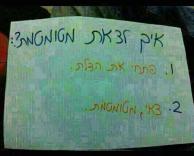 איך לצאת מטומטמת?:
1. פתחי את הדלת.
2. צאי, מטומטמת.